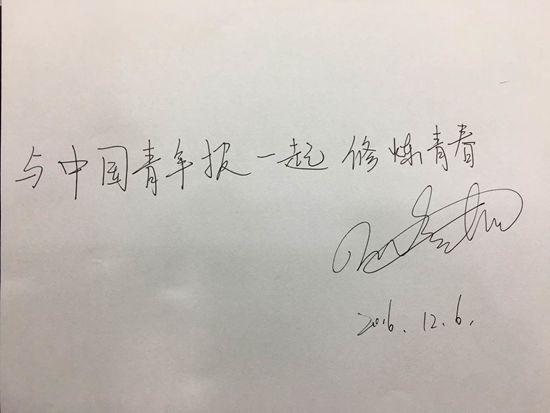 与中国青年报一起修炼青春
2016.12.6.